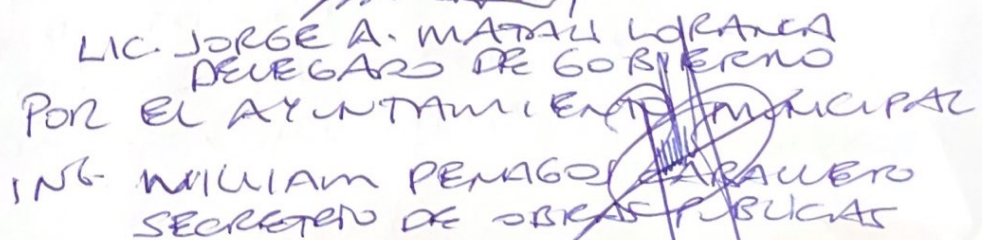 LIC. JORGE A. MATALI LORANCA
DELEGADO DE GOBIERNO
POR EL AYUNTAMIENTO MUNICIPAL
ING. WILLIAM PENAGOS CABALLERO
SECRETRIO DE OBRAS PUBLICAS